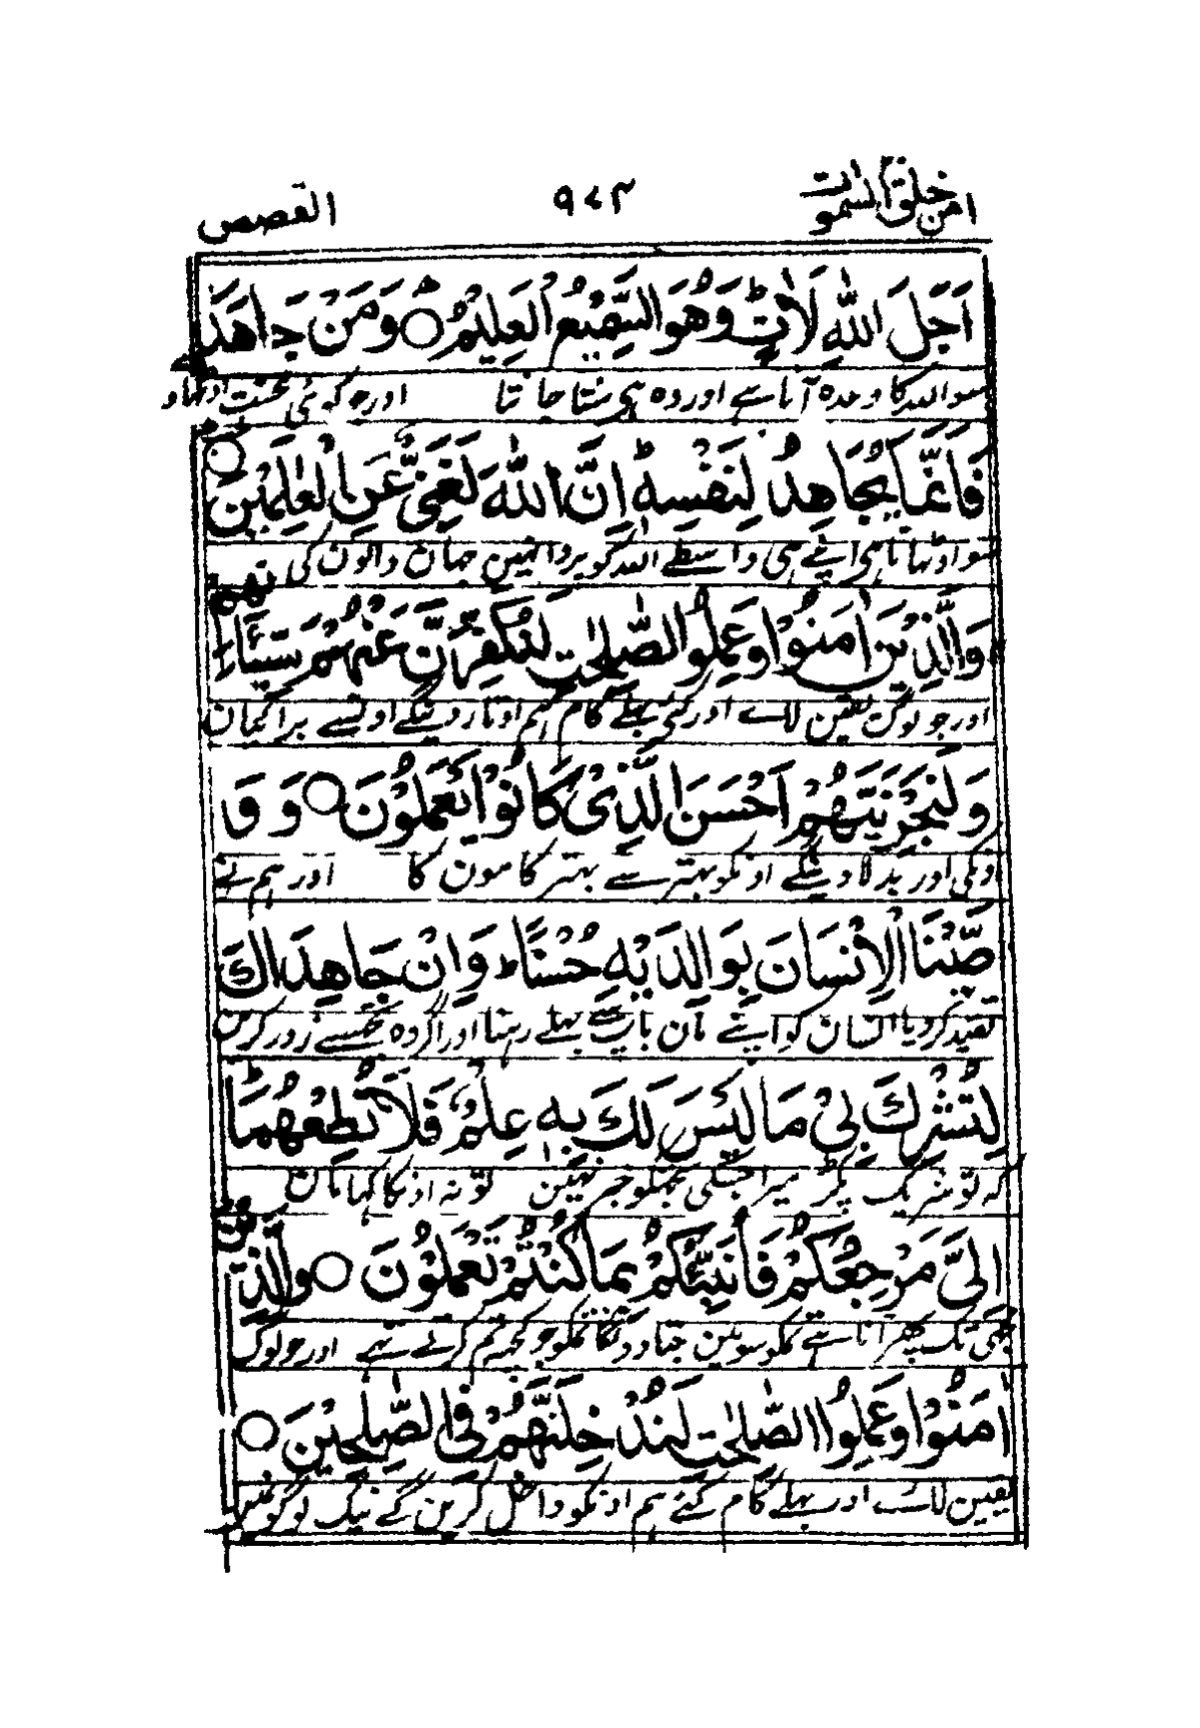 امن خلق السموت ٩٧٣ القصص
اَجَلَ اللّٰهِ لَاٰتٍ ؕ وَهُوَ السَّمِیْعُ الْعَلِیْمُ ○ وَمَنْ جَاهَدَ
سو اللہ کا وعدہ آتا ہے اور وہ ہی سنتا جانتا اور جو کوئی محنت اوٹھاوے
فَاِنَّمَا یُجَاهِدُ لِنَفْسِهٖ ؕ اِنَّ اللّٰهَ لَغَنِیٌّ عَنِ الْعٰلَمِیْنَ ○
سو اوٹہاتا ہی اپنے ہی واسطے اللہ کو پروا نہین جہان والون کی
وَالَّذِیْنَ اٰمَنُوْا وَعَمِلُوا الصّٰلِحٰتِ لَنُكَفِّرَنَّ عَنْهُمْ سَیِّاٰتِهِمْ
اور جو لوگ یقین لائے اور کئی بہلے کام ہم اوتار دینگے اونسے برائیان
وَلَنَجْزِیَنَّهُمْ اَحْسَنَ الَّذِیْ كَانُوْا یَعْمَلُوْنَ ○ وَ وَ
اونکی اور بدلا دینگے اونکو بہتر سے بہتر کامون کا اور ہم نے
صَّیْنَا الْاِنْسَانَ بِوَالِدَیْهِ حُسْنًا ؕ وَاِنْ جَاهَدَاكَ
تقید کر دیا انسان کو اپنے مان باپ سے بہلے رہنا اور اگر وہ تجھسے زور کرین
لِتُشْرِكَ بِیْ مَا لَیْسَ لَكَ بِهٖ عِلْمٌ فَلَا تُطِعْهُمَا ؕ
کہ تو شریک پکڑ میرا جسکی تجھکو خبر نہین تو نہ اونکا کہا مان
اِلَیَّ مَرْجِعُكُمْ فَاُنَبِّئُكُمْ بِمَا كُنْتُمْ تَعْمَلُوْنَ ○ وَالَّذِیْنَ
مجھی تک پھر آنا ہے تمکو سو مین جتا دونگا تمکو جو کچھ تم کرتے تہے اور جو لوگ
اٰمَنُوْا وَعَمِلُوا الصّٰلِحٰتِ لَنُدْخِلَنَّهُمْ فِی الصّٰلِحِیْنَ ○
یقین لائے اور بہلے کام کئے ہم اونکو داخل کرین گے نیک لوگونمین